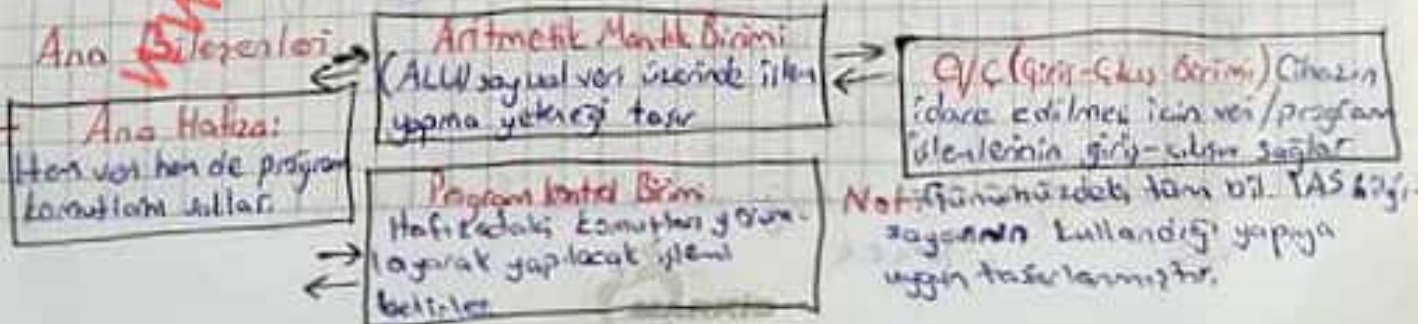 Ana Bileşenleri
Ana Hafıza:
Hem veri hem de program
komutlarını saklar.
Aritmetik Mantık Birimi
(ALU) sayısal veri üzerinde işlem
yapma yeteneği taşır
Program Kontrol Birimi
Hafızadaki komutları yorum-
layarak yapılacak işlemi
belirler
G/Ç (Giriş-Çıkış Birimi) Cihazın
idare edilmesi için veri/program
işlemlerinin giriş-çıkışın sağlar
Not: Günümüzdeki tüm bil. IAS bilgi
sayarının kullandığı yapıya
uygun tasarlanmıştır.